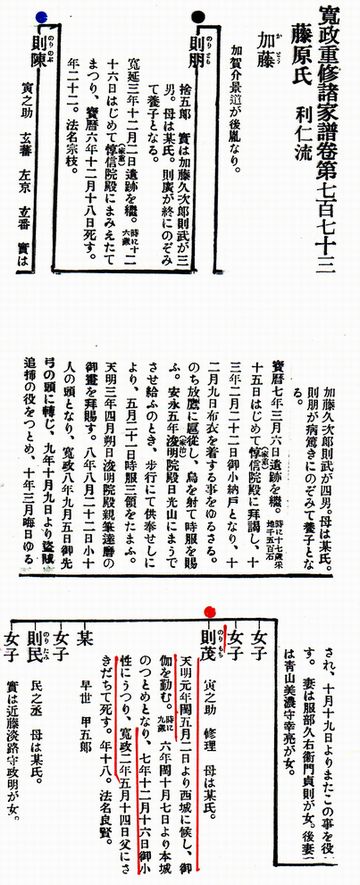 寛政重修諸家譜巻第七百七十三
藤原氏 利仁流
加藤
かとう
加賀介景道が後胤なり。
則朋
のりとも
捨五郎 實は加藤久次郎則武が三
男。母は某氏。則廣が終にのぞみ
て養子となる。
寛延三年十二月二日遺跡を繼。時に十六歳 二
十六日はじめて惇信院殿にまみえたて
まつり、寶曆六年十二月十八日死す。
年二十二。法名宗枝。
則陳
のりのぶ
寅之助 玄蕃 左京 玄番 實は
加藤久次郎則武が四男。母は某氏。
則朋が病篤きにのぞみて養子とな
る。
寶曆七年三月六日遺跡を繼。時に十七歳采地千五百石
十五日はじめて惇信院殿に拜謁し、十
三年二月二十二日御小納戸となり、十
二月九日布衣を着する事をゆるさる。
のち放鷹に扈從し、鳥を射て時服を賜
ふ。安永五年浚明院殿日光山にまうで
させ給ふのとき、歩行にて供奉せしに
より、五月二十一日時服三領をたまふ。
天明三年四月朔日浚明院殿親筆達磨の
御畫を拜賜す。八年八月二十二日小十
人の頭となり、寛政八年九月五日御先
弓の頭に轉じ、九年十月九日より盜賊
追捕の役をつとめ、十年三月晦日ゆる
され、十月十九日よりまたこの事を役
す。妻は服部久右衞門貞則が女。後妻
は靑山美濃守幸亮が女。
女子
女子
則茂
のりもち
寅之助 修理 母は某氏。
天明元年閏五月二日より西城に候し、御
伽を勤む。時に九歳 六年閏十月七日より本城
のつとめとなり、七年十二月十六日御小
性にうつり、寛政二年五月十四日父にさ
きだちて死す。年十八。法名良賢。
某
早世 甲五郎
女子
則民
のりたみ
民之丞 母は某氏。
女子
實は近藤淡路守政明が女。